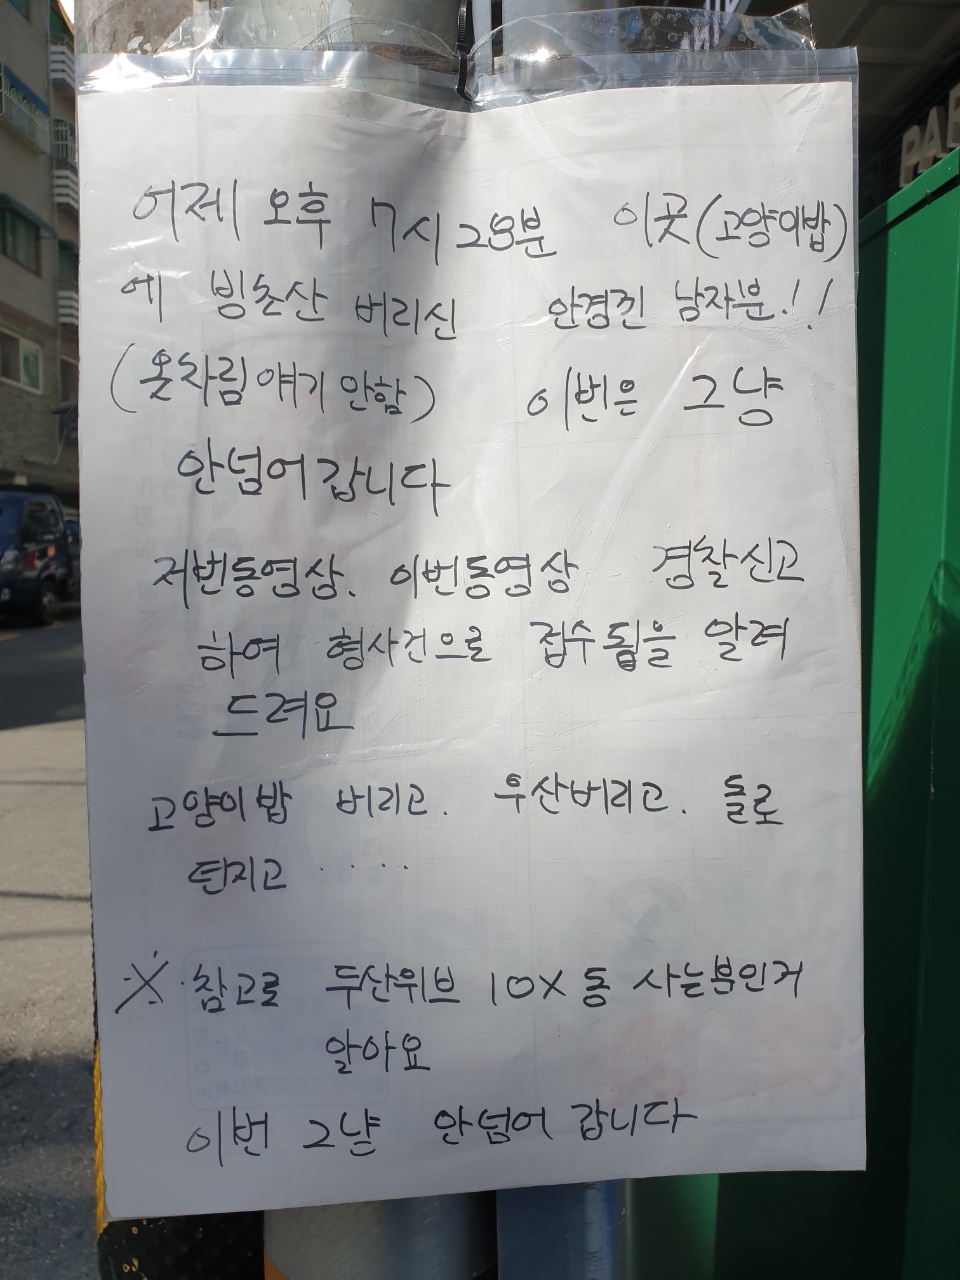 어제 오후 7시 28분 이곳(고양이밥)
에 빙초산 버리신 안경낀 남자분!!
(옷차림 얘기 안함) 이번은 그냥
안넘어갑니다
저번동영상. 이번동영상 경찰신고
하여 형사건으로 접수됨을 알려
드려요
고양이밥 버리고. 우산버리고. 돌로
턴지고 ....
※ 참고로 두산위브 10X동 사는분인거
알아요
이번 그냥 안넘어 갑니다